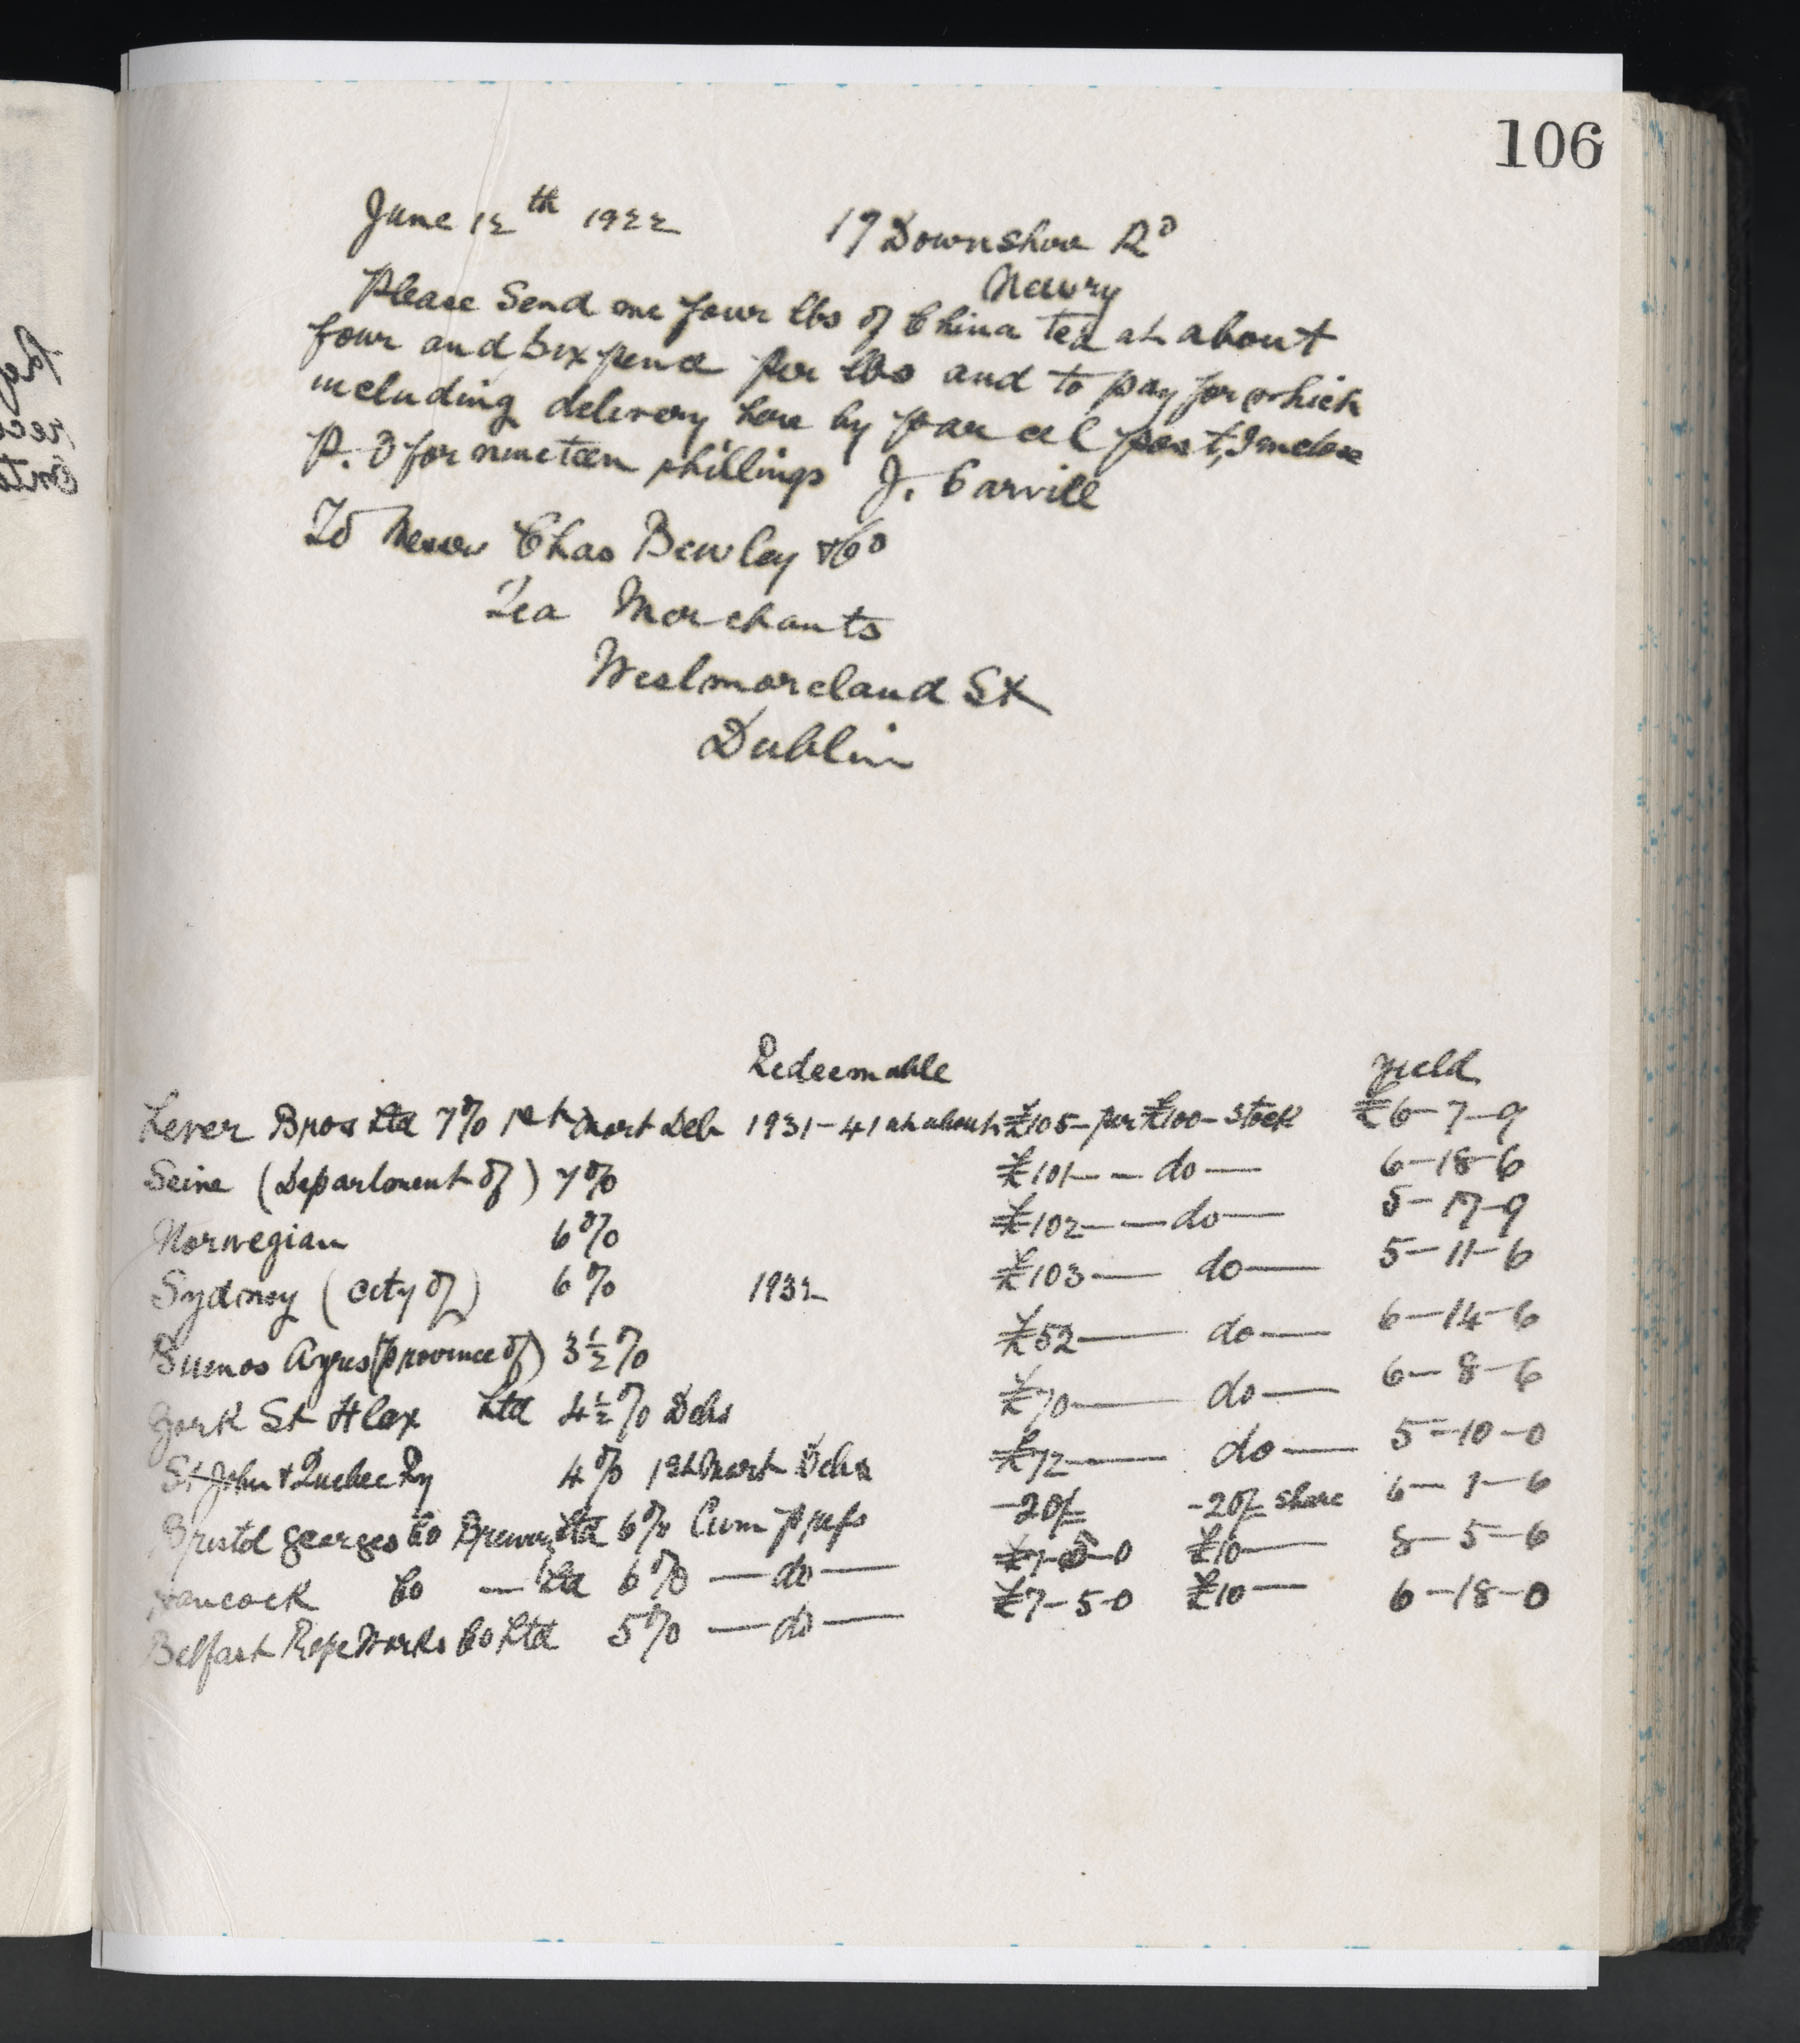 106
June 12th 1922 17 Downshire Rd
Newry
Please send me four lbs of China tea at about
four and sixpence per lbs and to pay for which
including delivery here by parcel post, I inclose
P.O for nineteen shillings J. Carvill
To Messrs Chas Bewley & Co
Tea Merchants
Westmoreland St
Dublin
Redeemable Yield
Lever Bros Ltd 7% 1st Mort Deb 1931-41 at about £105- per £100- stock £6-7-9
Seine (Department of) 7% £101 — do — 6-18-6
Norwegian 6% £102 — do — 5-17-9
Sydney (City of) 6% 1932 £103 — do — 5-11-6
Buenos Ayres (province of) 3½% £52 — do — 6-14-6
York St Flax Ltd 4½% Debs £70 — do — 6-8-6
St John & Quebec Ry 4% 1st Mort Debs £72 — do — 5-10-0
Bristol Georges Co Brewery Ltd 6% Cum prefs -20/- -20/- share 6-1-6
Hancock Co — Ltd 6% — do — £7-5-0 £10 — 8-5-6
Belfast Rope Works Co Ltd 5% — do — £7-5-0 £10 — 6-18-0